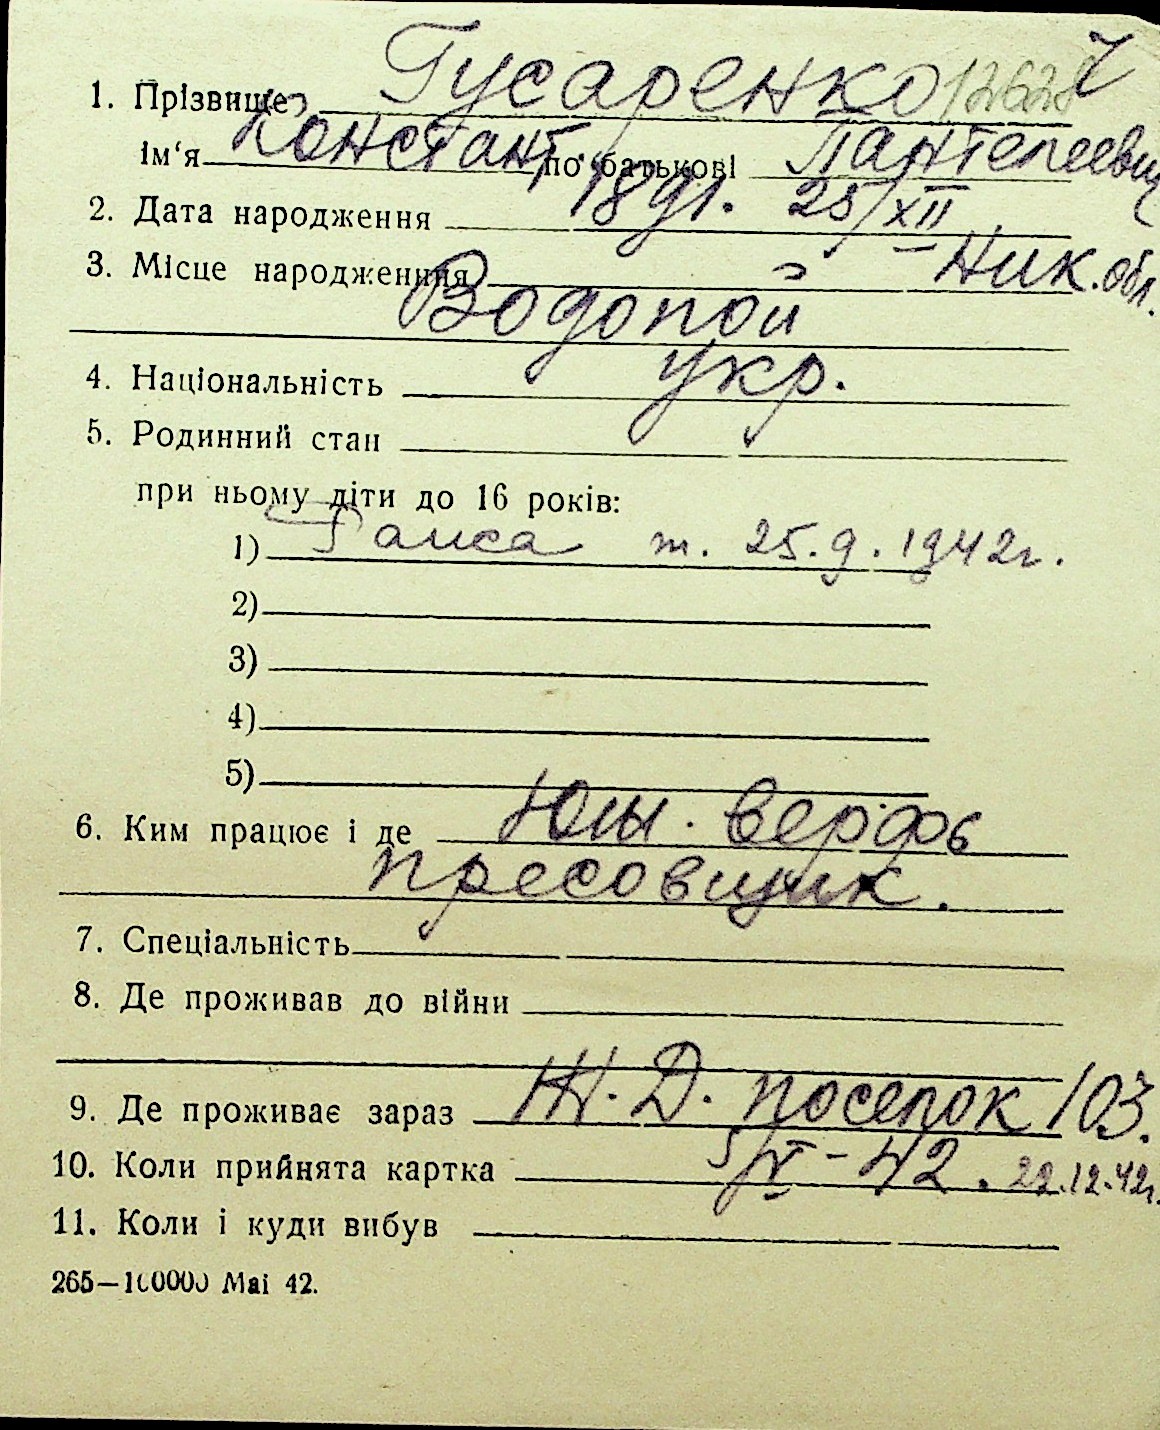 1. Прізвище Гусаренко 12628 ч
ім‘я Констант. по батькові Пантелеевич
2. Дата народження 1891. 25/XII
3. Місце народженння Ник. обл.
Водопой
4. Національність укр.
5. Родинний стан
при ньому діти до 16 років:
1) Раиса т. 25.9.1942г.
2)
3)
4)
5)
6. Ким працює і де Юж. верфь
пресовщик.
7. Спеціальність
8. Де проживав до війни
9. Де проживає зараз Ж.Д. поселок 103.
10. Коли прийнята картка 42. 22.12.42г.
11. Коли і куди вибув
265—100000 Mai 42.